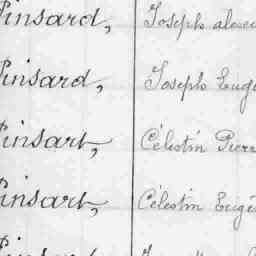 Pinsard, Joseph alexi
Pinsard, Joseph Eugè
Pinsart, Célestin Pierr
Pinsart, Célestin Eugè